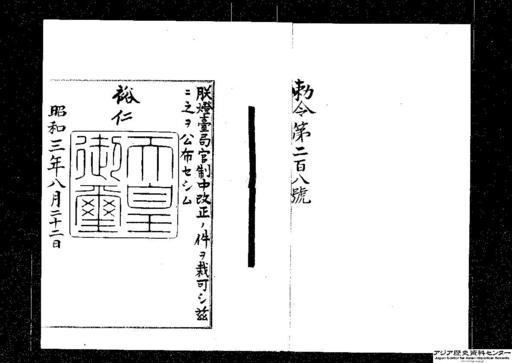 勅令第二百八號
朕燈臺局官制中改正ノ件ヲ裁可シ茲
ニ之ヲ公布セシム
裕仁
天皇
御璽
昭和三年八月二十二日
アジア歴史資料センター
Japan Center for Asian Historical Records